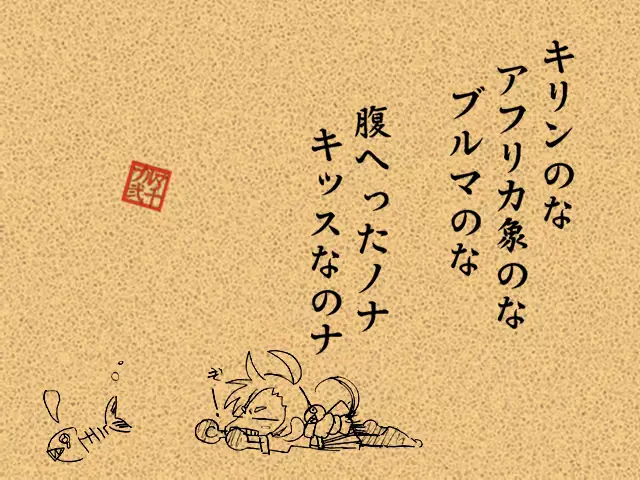 キリンのな
アフリカ象のな
ブルマのな
腹へったノナ
キッスなのナ
ぞ!